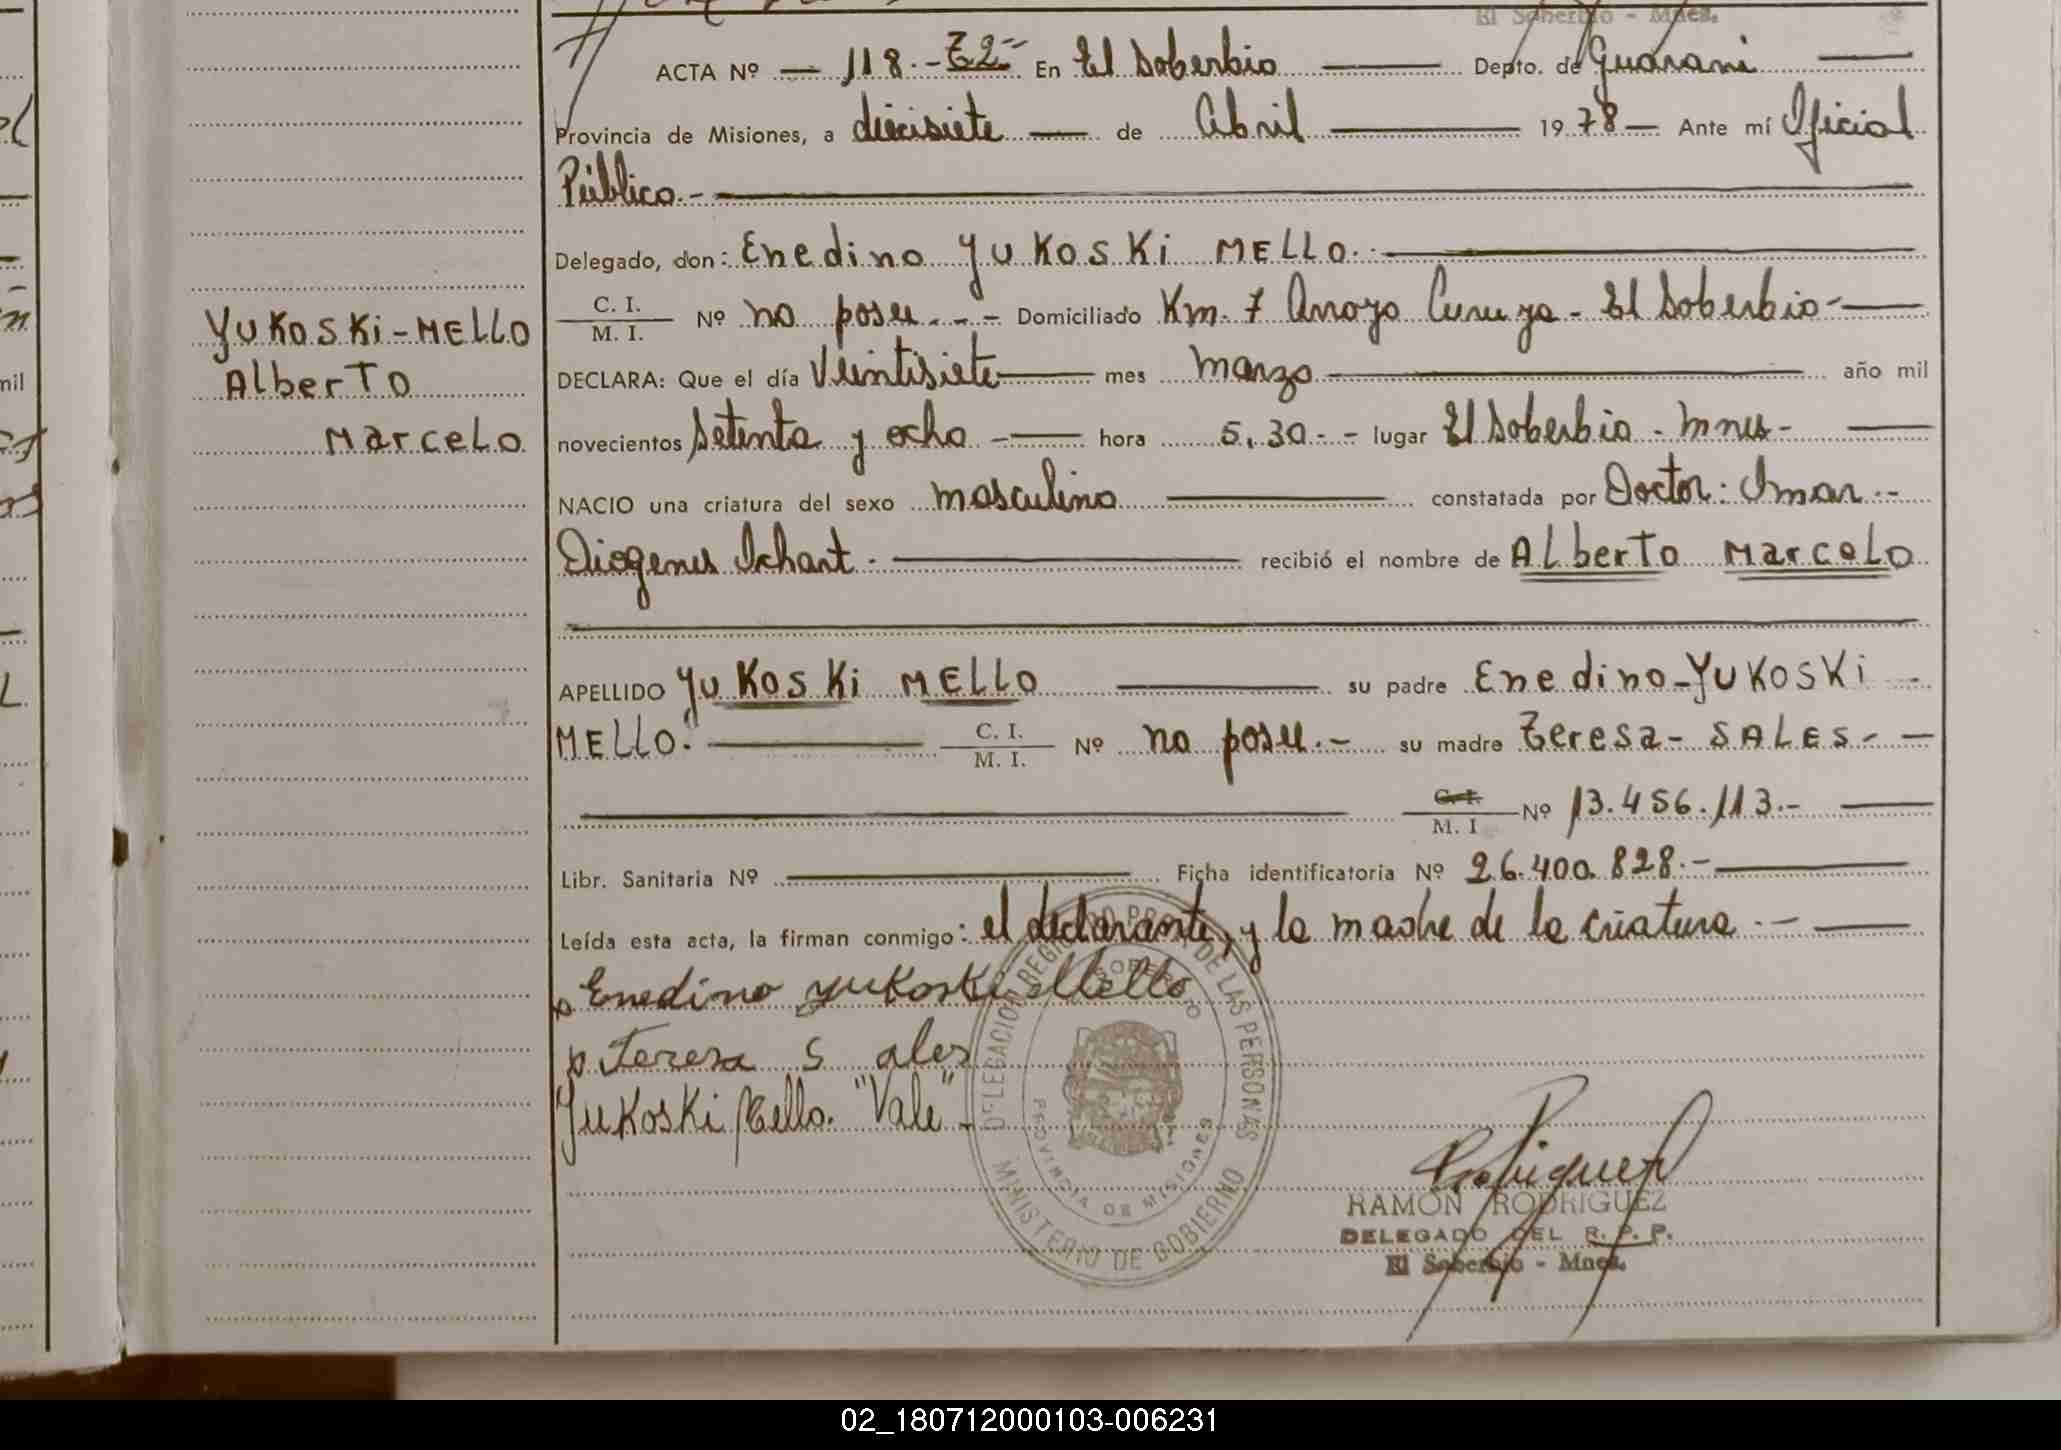 El Soberbio - Mnes.
ACTA Nº 118.- T2- En El Soberbio Depto. de Guarani
Provincia de Misiones, a diecisiete de Abril 1978 Ante mí Oficial
Público.-
Delegado, don: Enedino YUKOSKi MELLO.
C. I.
M. I. Nº no posee.-.- Domiciliado Km. 7 Arroyo Curuya - El Soberbio-
YUKOSKi-MELLO
Alberto
Marcelo
DECLARA: Que el día Veintisiete mes marzo año mil
novecientos setenta y ocho - hora 5,30.- - lugar El Soberbio - Mnes-
NACIO una criatura del sexo masculino constatada por Doctor: Omar.-
Diogenes Ichart. recibió el nombre de Alberto Marcelo
APELLIDO YUKOSKi MELLO su padre Enedino-YUKOSKi
MELLO. C. I.
M. I. Nº no posee.- su madre Teresa- SALES.-
C. I.
M. I Nº 13.456.113.-
Libr. Sanitaria Nº Ficha identificatoria Nº 26.400.828.-
Leída esta acta, la firman conmigo: el declarante, y la madre de la criatura.-
Enedino yukoski Mello
Teresa S ales
Yukoski Mello. "Vale".-
DELEGACION REGISTRO PROV. DE LAS PERSONAS
SOBERBIO
PROVINCIA DE MISIONES
MINISTERIO DE GOBIERNO
Rodriguez
RAMÓN RODRIGUEZ
DELEGADO DEL R. P. P.
El Soberbio - Mnes.
mil
02_180712000103-006231